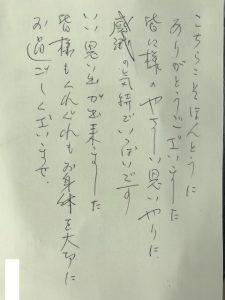 こちらこそほんとうに
ありがとうございました
皆に様のやさしい思いやりに
感激の気持でいっぱいです
いい思い出が出来ました
皆様もくれぐれもお身体を大切に
お過ごしくださいませ.